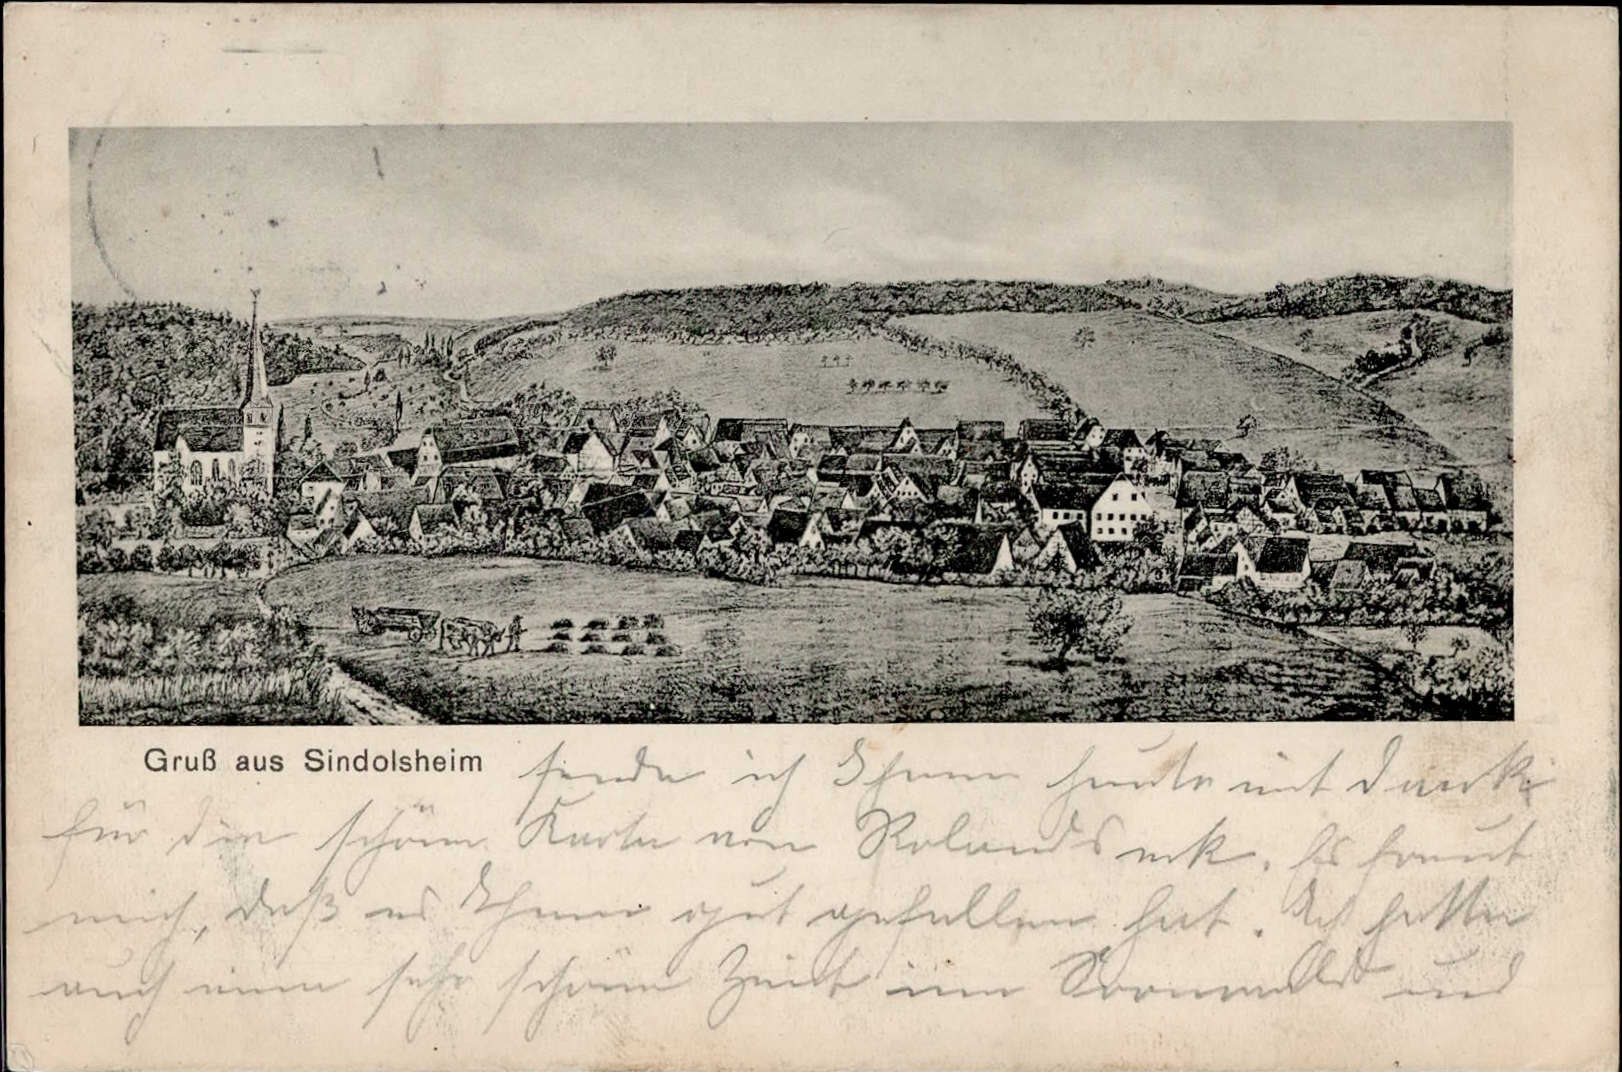 Gruß aus Sindolsheim
sende ich Ihnen heute mit Dank
für die schöne Karte von Rolandseck. Es freut
mich, daß es Ihnen gut gefallen hat. Ich hatte
auch eine sehr schöne Zeit im und